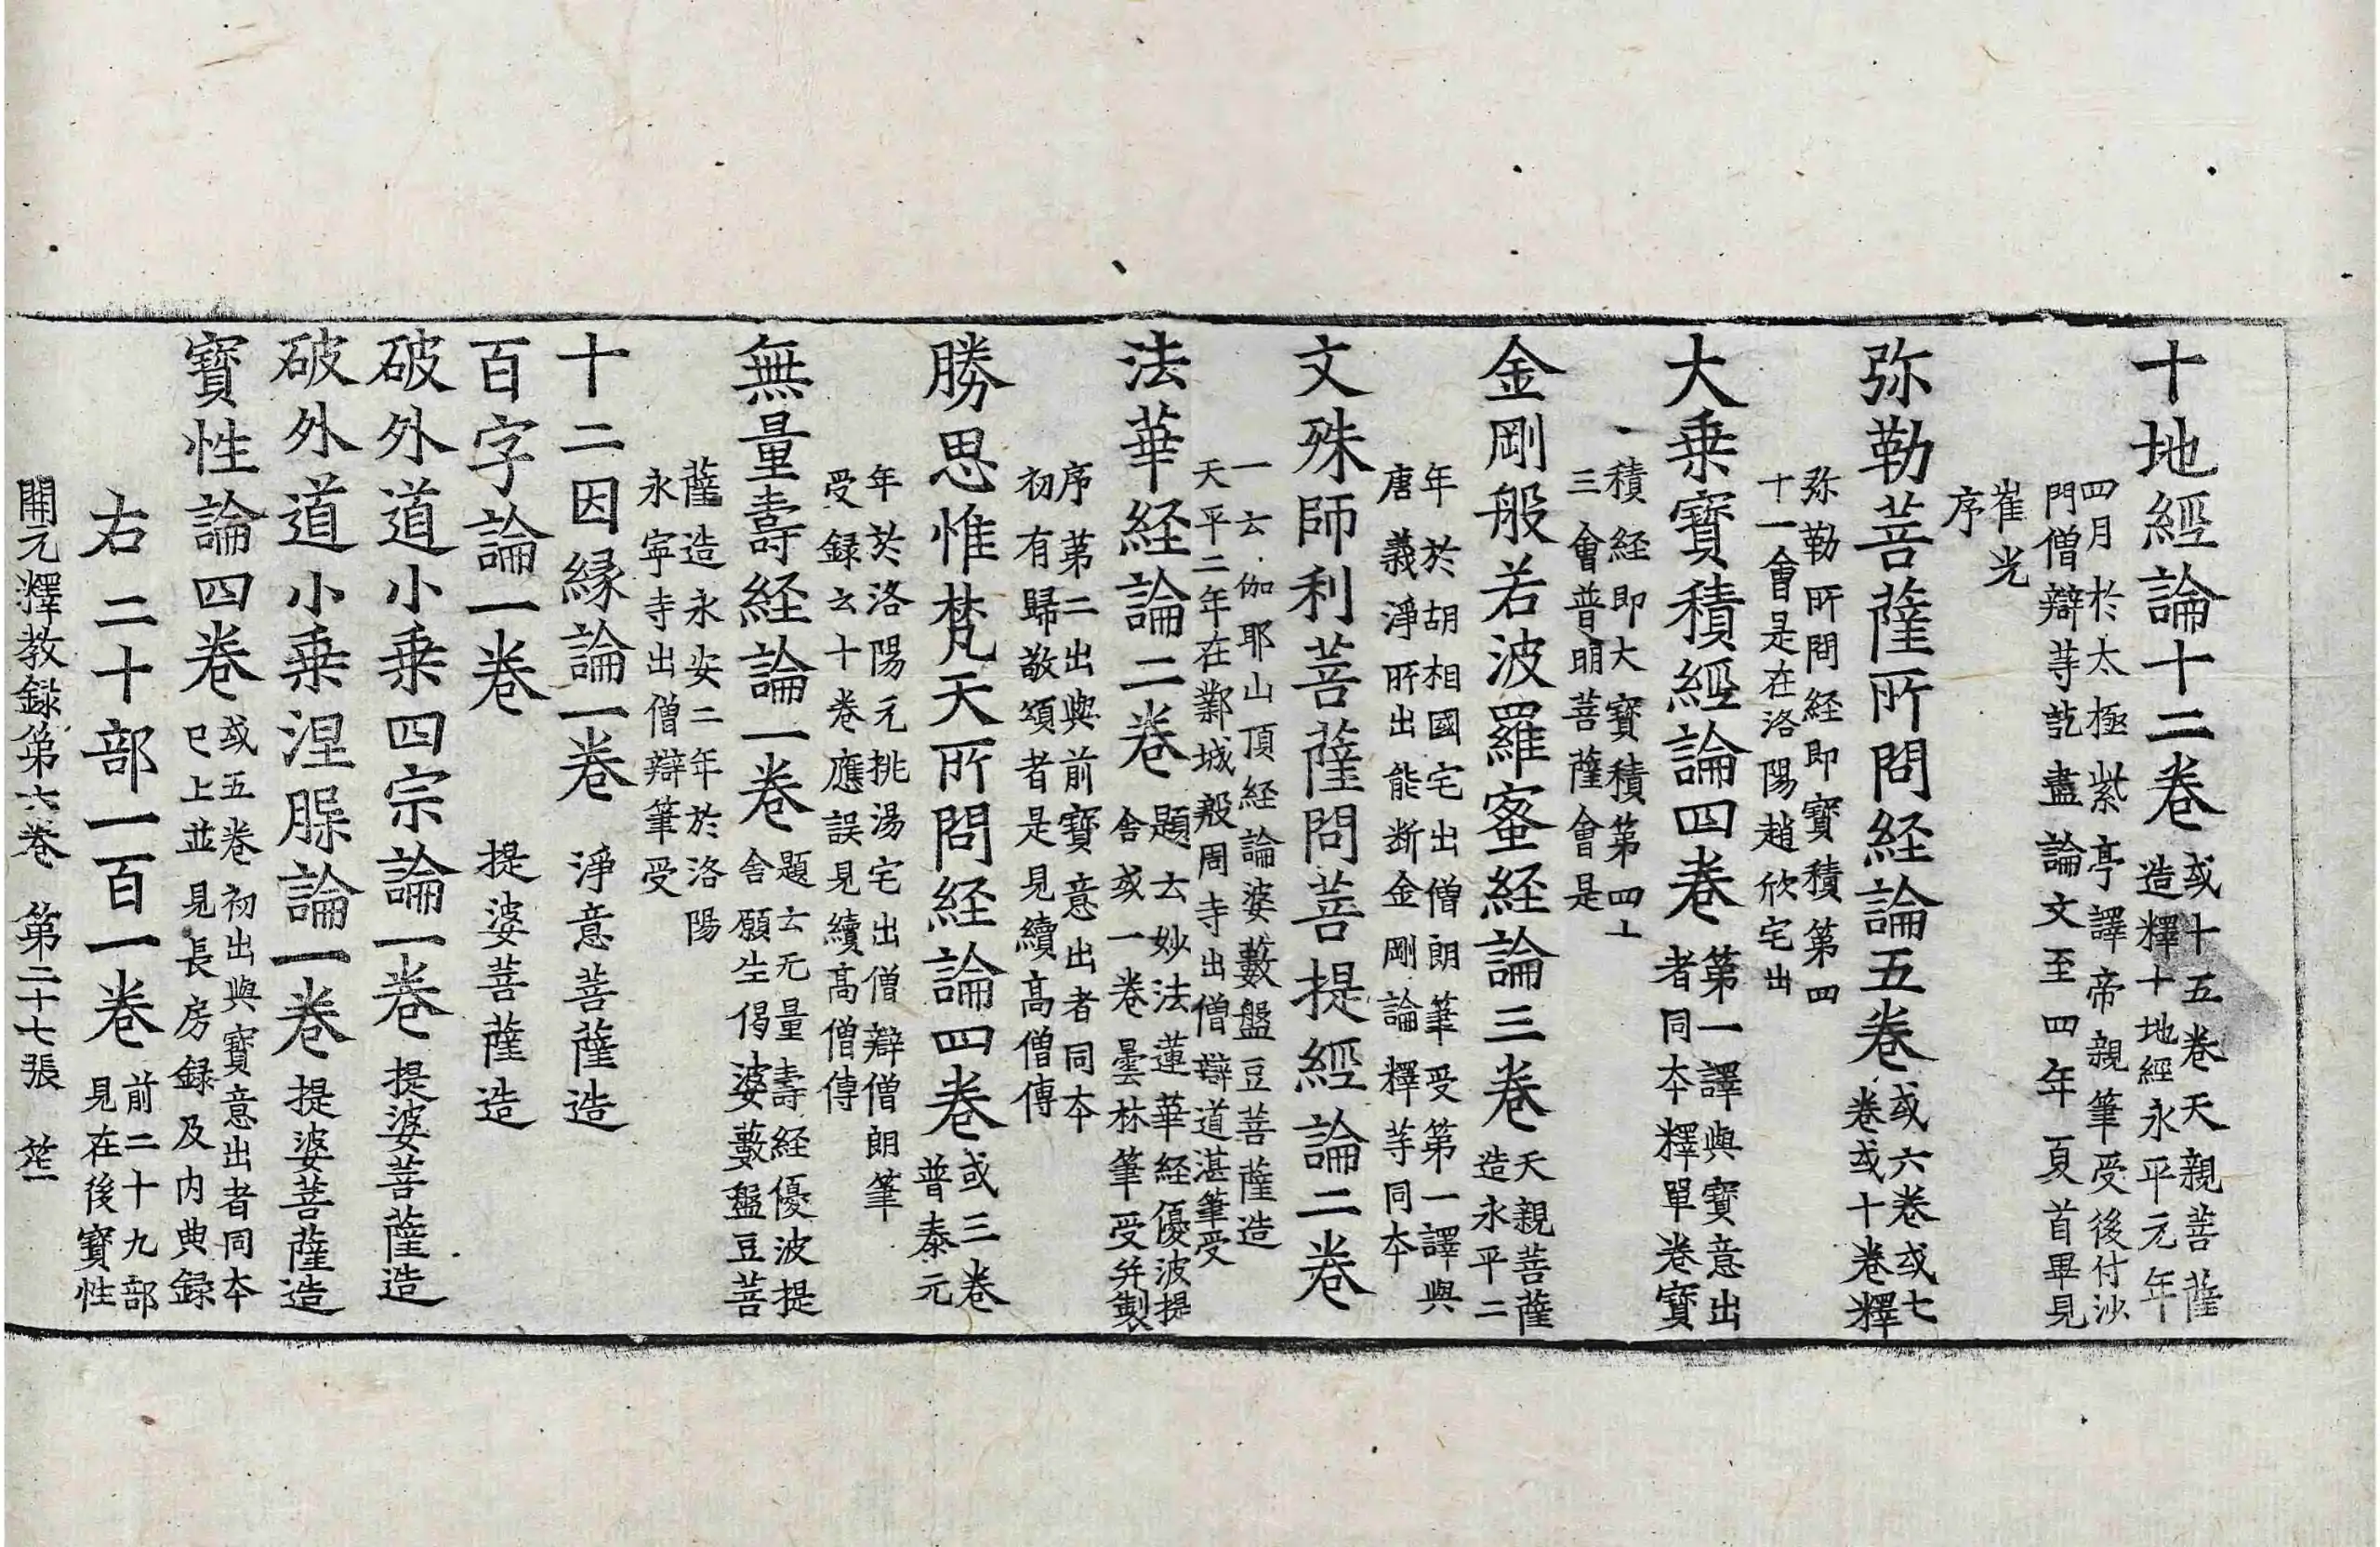 十地經論十二卷或十五卷天親菩薩
造釋十地經永平元年
四月於太極紫亭譯帝親筆受後付沙
門僧辯䓁訖盡論文至四年夏首畢見
崔光
序
弥勒菩薩所問経論五卷或六卷或七
卷或十卷釋
弥勒所問経即寶積第四
十一會是在洛陽趙欣宅出
大乗寶積經論四卷第一譯與寶意出
者同夲釋單卷寶
積経即大寶積第四十
三會普明菩薩會是
金剛般若波羅蜜経論三卷天親菩薩
造永平二
年於胡相國宅出僧朗筆受第一譯與
唐義淨所出能断金剛論釋䓁同夲
文殊師利菩薩問菩提經論二卷
一云伽耶山頂経論婆藪盤豆菩薩造
天平二年在鄴城般周寺出僧辯道湛筆受
法華経論二卷題云妙法蓮華経優波提
舍或一卷曇林筆受并製
序第二出與前寶意出者同夲
初有歸敬頌者是見續髙僧傳
勝思惟梵天所問経論四卷或三卷
普泰元
年於洛陽元桃湯宅出僧辯僧朗筆
受録云十卷應誤見續髙僧傳
無量壽経論一卷題云无量壽経優波提
舍願生偈婆藪盤豆菩
薩造永安二年於洛陽
永寧寺出僧辯筆受
十二因縁論一卷　淨意菩薩造
百字論一卷　提婆菩薩造
破外道小乗四宗論一卷提婆菩薩造
破外道小乗涅槃論一卷提婆菩薩造
寶性論四卷或五卷初出與寶意出者同夲
已上並見長房録及内典録
右二十部一百一卷前二十九部
見在後寶性
開元釋教録第六卷　第二十七張